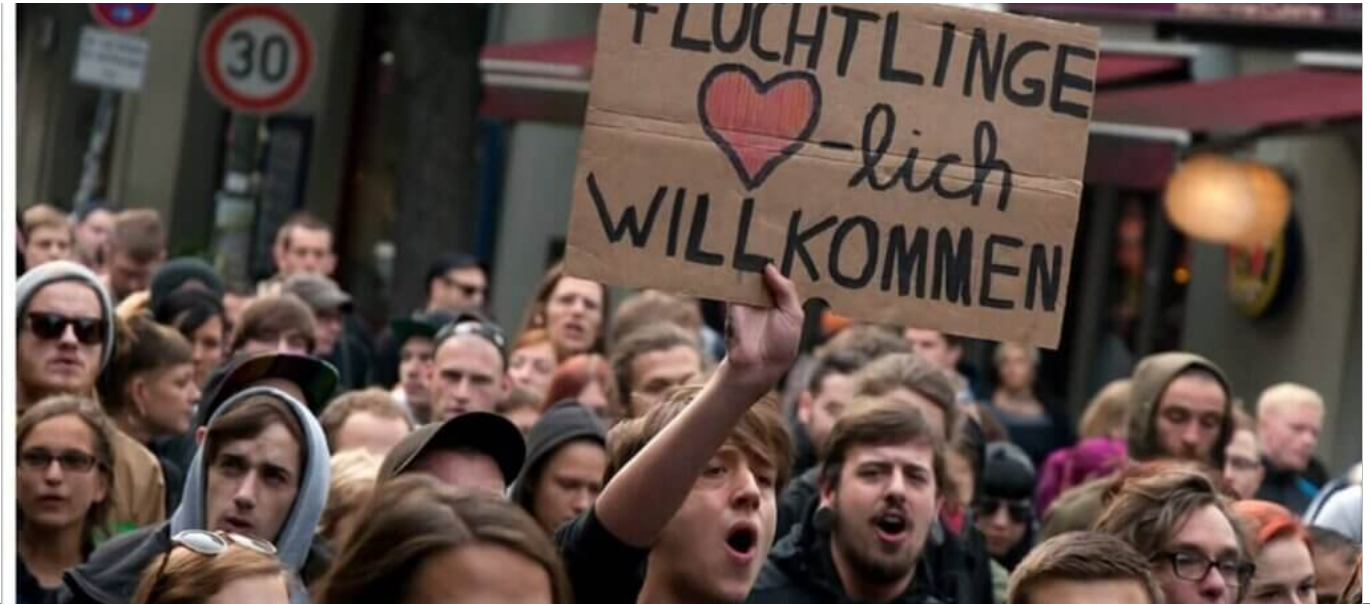 30
FLÜCHTLINGE
-lich
WILLKOMMEN